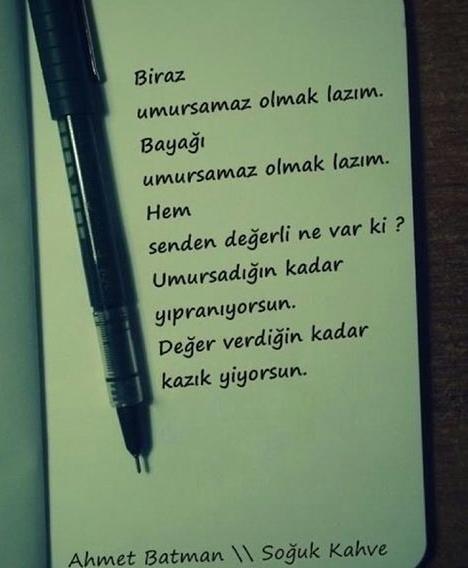 Biraz
umursamaz olmak lazım.
Bayağı
umursamaz olmak lazım.
Hem
senden değerli ne var ki ?
Umursadığın kadar
yıpranıyorsun.
Değer verdiğin kadar
kazık yiyorsun.
Ahmet Batman \\ Soğuk Kahve